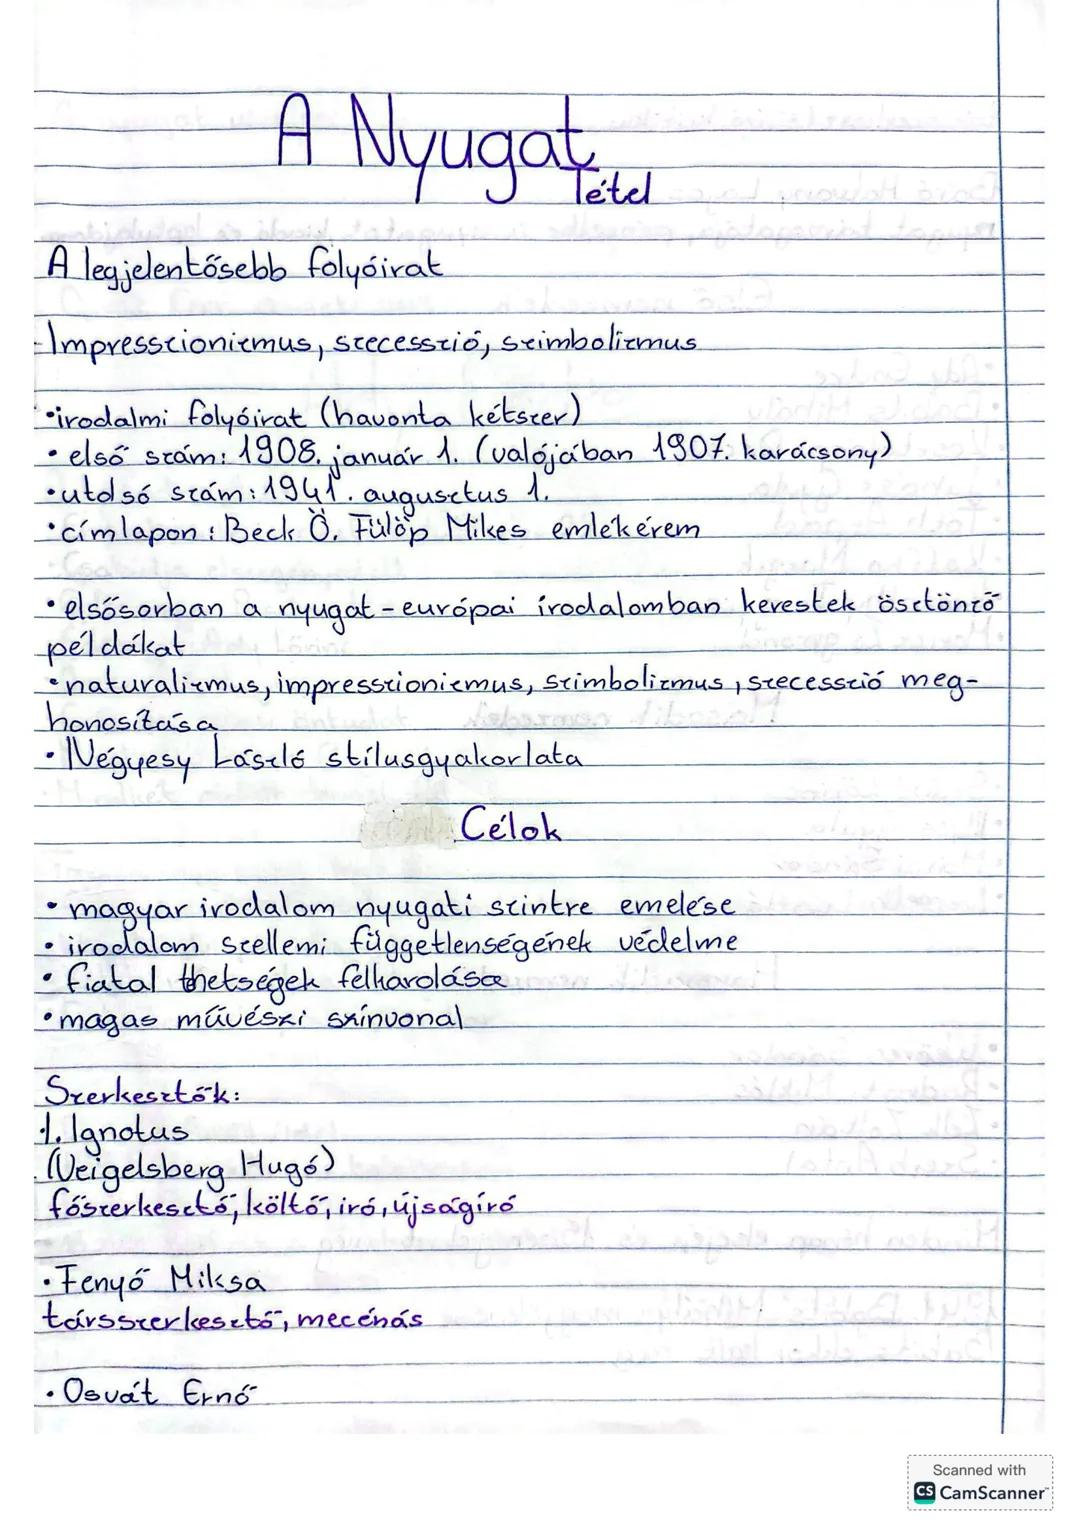 A Nyugat
Tétel
A legjelentősebb folyóirat
-Impresszionizmus, szecesszió, szimbolizmus
•irodalmi folyóirat (havonta kétszer)
• első szám: 1908. január 1. (valójában 1907. karácsony)
•utolsó szám: 1941. augusztus 1.
•címlapon: Beck Ö. Fülöp Mikes emlékérem
•elsősorban a nyugat-európai irodalomban kerestek ösztönző
példákat
•naturalizmus, impresszionizmus, szimbolizmus, szecesszió meg-
honosítása
• Négyesy László stílusgyakorlata
Célok
• magyar irodalom nyugati szintre emelése
• irodalom szellemi függetlenségének védelme
• fiatal thetségek felkarolása
•magas művészi színvonal
Szerkesztők:
1. Ignotus
(Veigelsberg Hugó)
főszerkesztő, költő, iró, újságíró
• Fenyő Miksa
társszerkesztő, mecénás
• Osvát Ernő
Scanned with
CS CamScanner